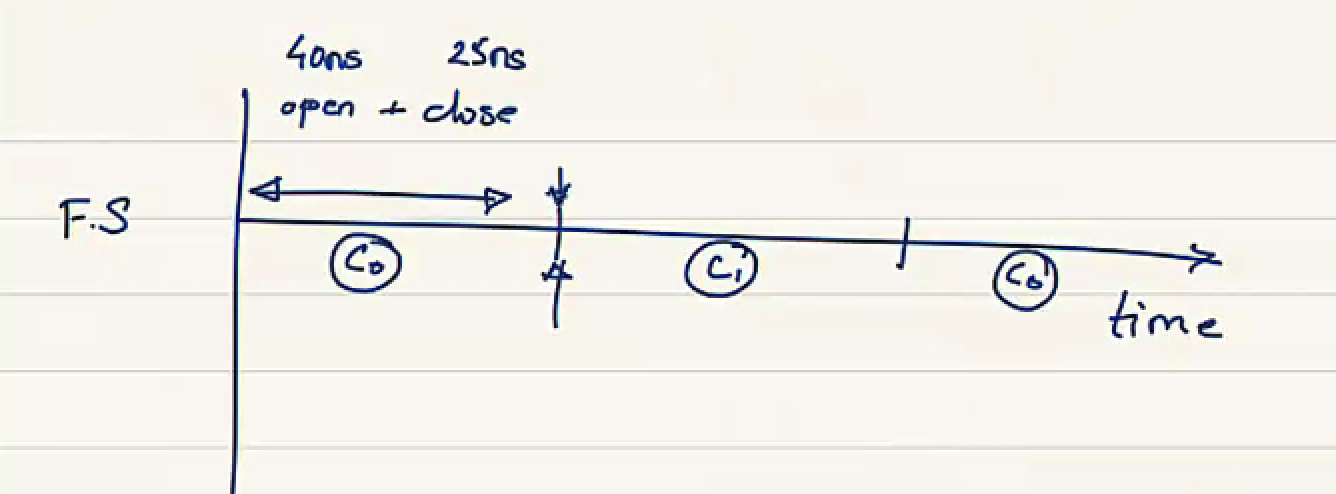 40ns 25ns
open + close
F.S
C₀ C₁ C₀
time